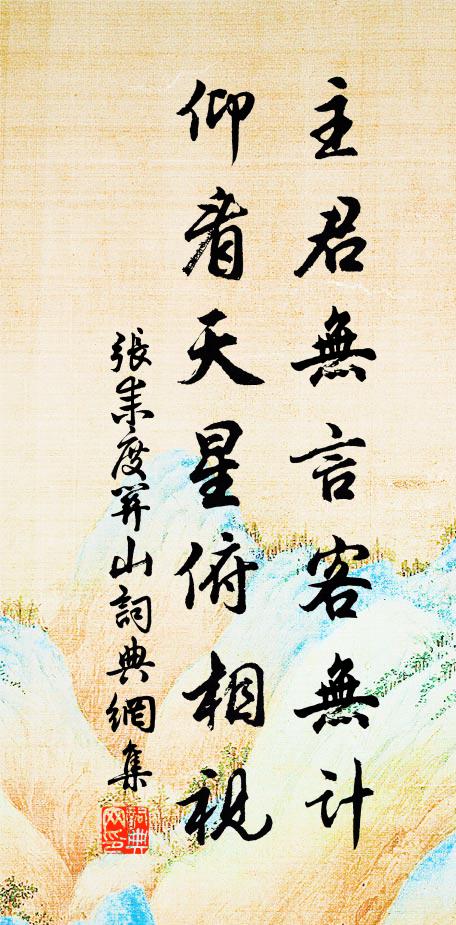 主君無言客無計
仰看天星俯相視
張耒度關山詞典網集
詞典
网印